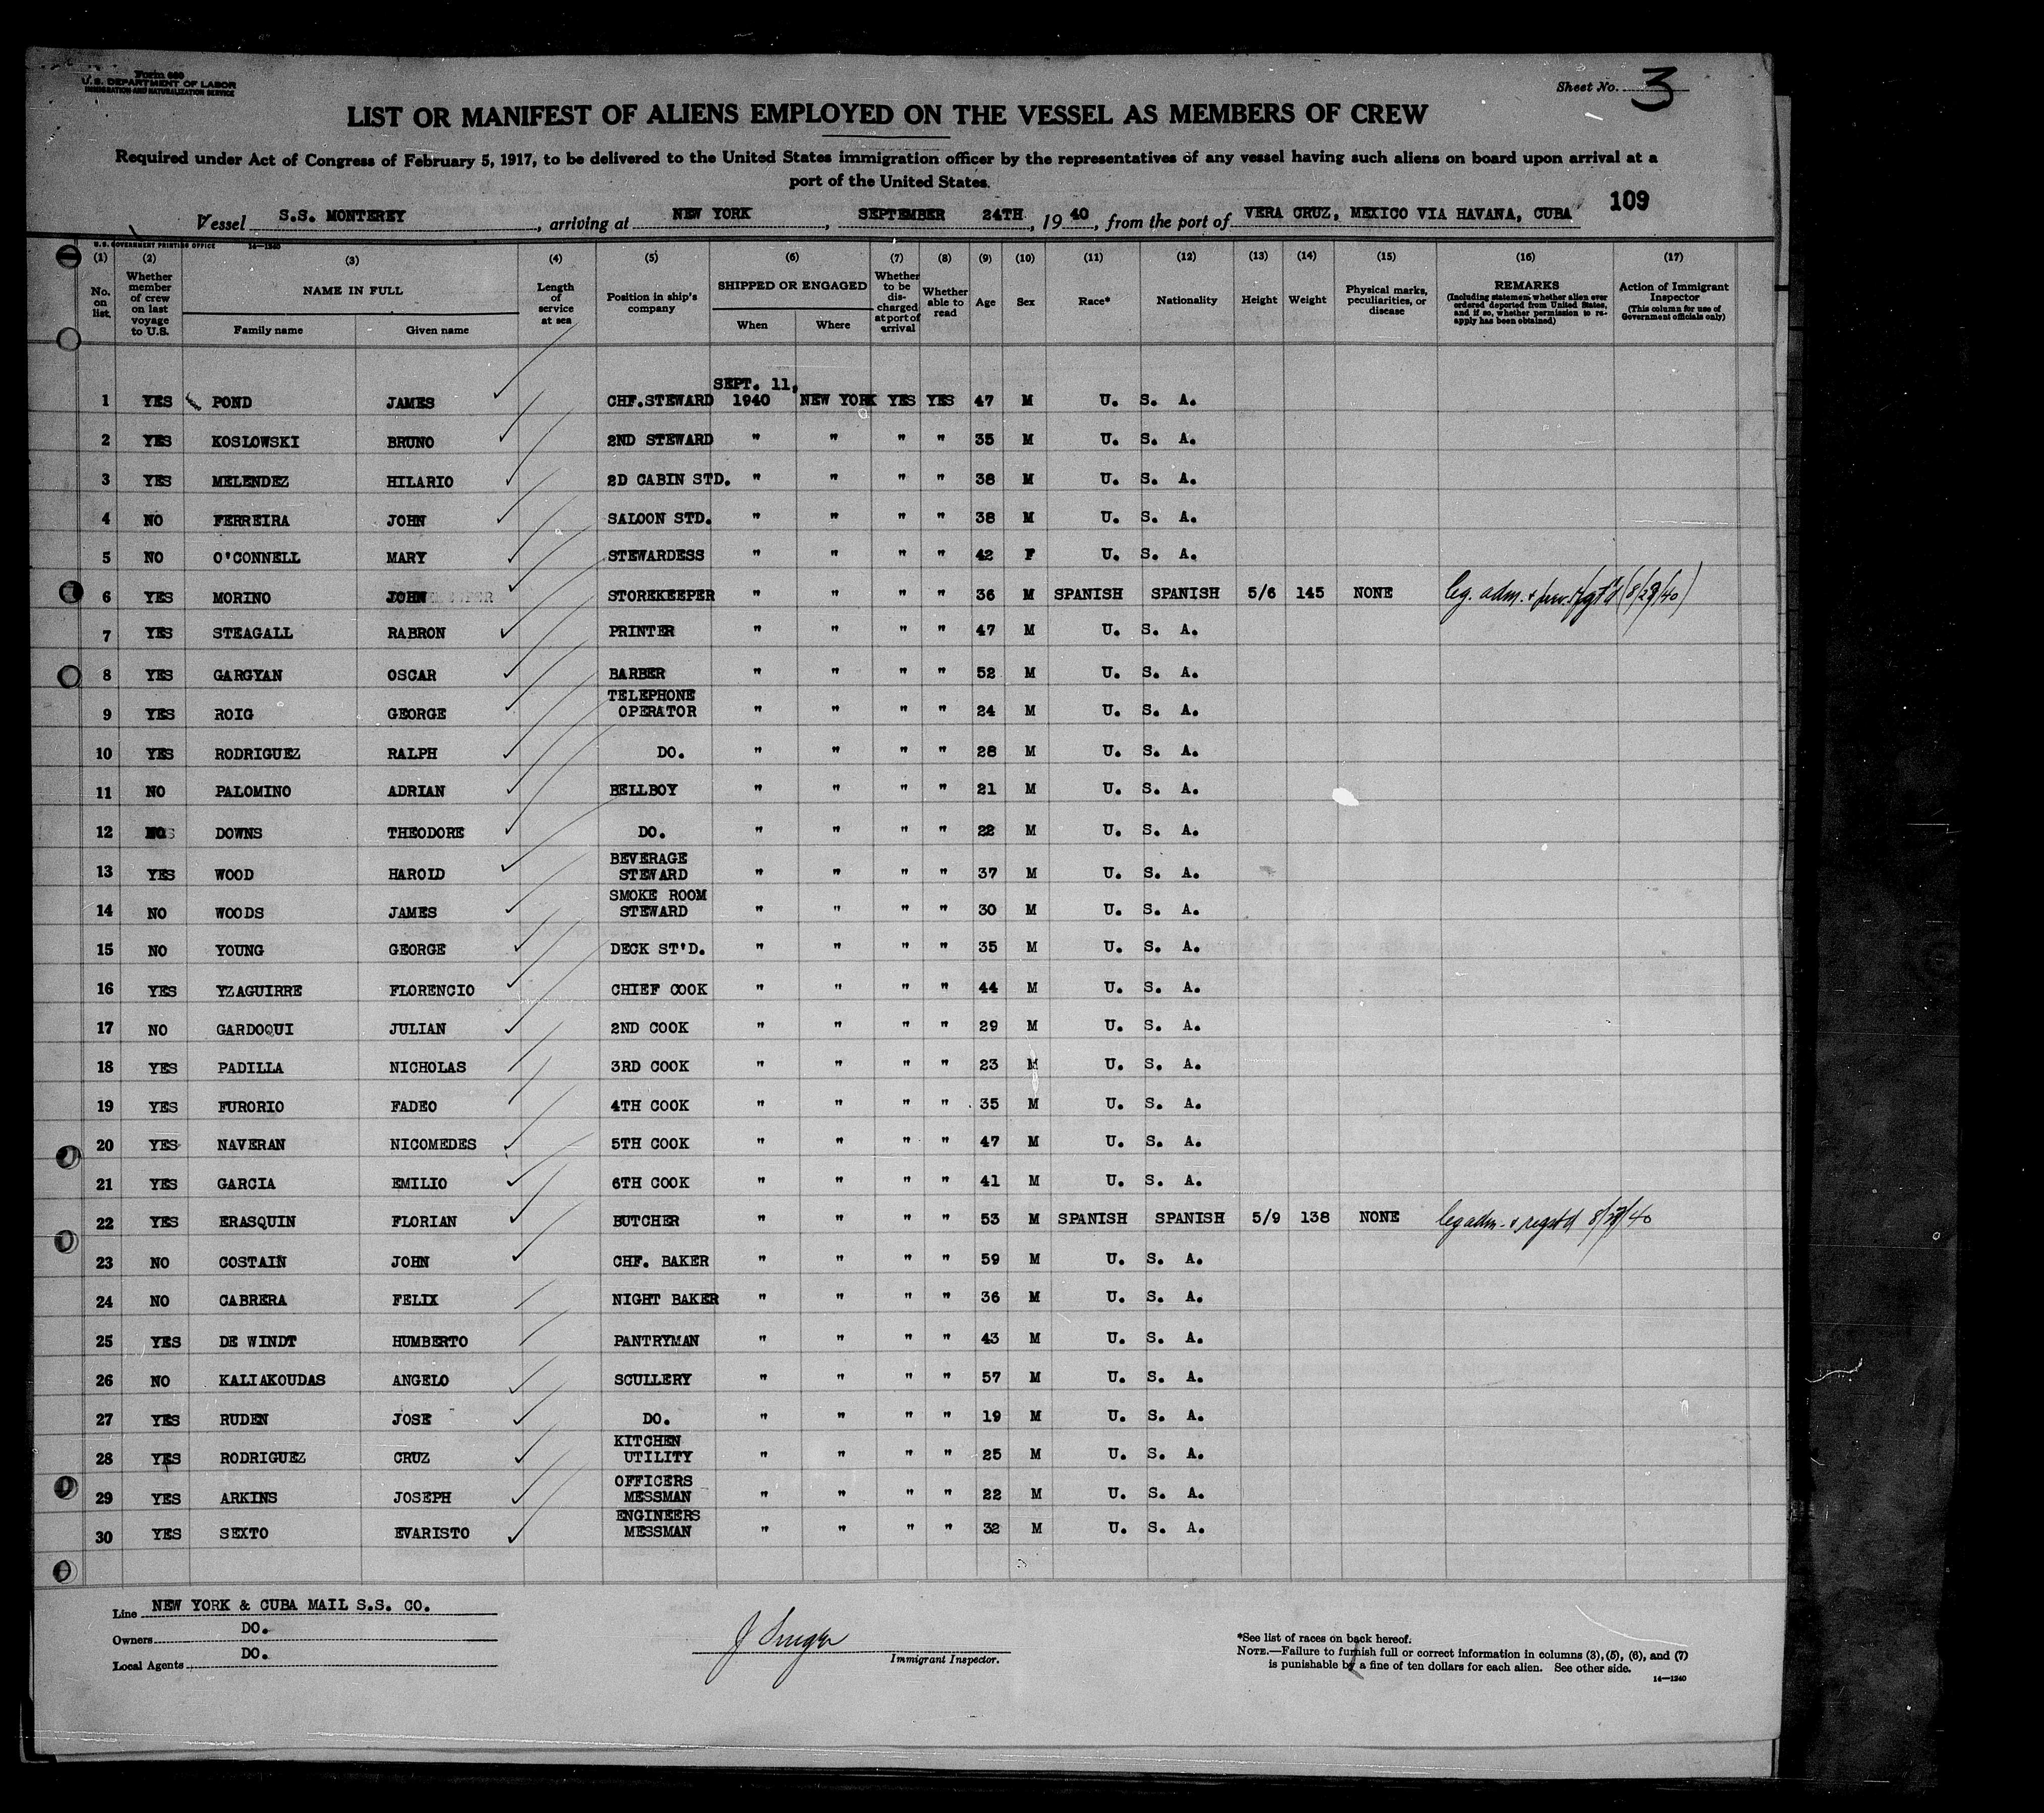 Form 680
U.S. DEPARTMENT OF LABOR
IMMIGRATION AND NATURALIZATION SERVICE
Sheet No. 3
LIST OR MANIFEST OF ALIENS EMPLOYED ON THE VESSEL AS MEMBERS OF CREW
Required under Act of Congress of February 5, 1917, to be delivered to the United States immigration officer by the representatives of any vessel having such aliens on board upon arrival at a
port of the United States.
109
Vessel S.S. MONTEREY, arriving at NEW YORK, SEPTEMBER 24TH, 1940, from the port of VERA CRUZ, MEXICO VIA HAVANA, CUBA
U.S. GOVERNMENT PRINTING OFFICE 14—1240
(1) No. on list
(2) Whether member of crew on last voyage to U.S.
(3) NAME IN FULL Family name Given name
(4) Length of service at sea
(5) Position in ship's company
(6) SHIPPED OR ENGAGED When Where
(7) Whether to be discharged at port of arrival
(8) Whether able to read
(9) Age
(10) Sex
(11) Race*
(12) Nationality
(13) Height
(14) Weight
(15) Physical marks, peculiarities, or disease
(16) REMARKS (Including statement whether alien ever ordered deported from United States, and if so, whether permission to re-apply has been obtained)
(17) Action of Immigrant Inspector (This column for use of Government officials only)
1 YES POND JAMES CHF.STEWARD SEPT. 11, 1940 NEW YORK YES YES 47 M U. S. A.
2 YES KOSLOWSKI BRUNO 2ND STEWARD " " " " 35 M U. S. A.
3 YES MELENDEZ HILARIO 2D CABIN STD. " " " " 38 M U. S. A.
4 NO FERREIRA JOHN SALOON STD. " " " " 38 M U. S. A.
5 NO O'CONNELL MARY STEWARDESS " " " " 42 F U. S. A.
6 YES MORINO JOHN STOREKEEPER " " " " 36 M SPANISH SPANISH 5/6 145 NONE leg. adm. +
7 YES STEAGALL RABRON PRINTER " " " " 47 M U. S. A.
8 YES GARGYAN OSCAR BARBER " " " " 52 M U. S. A.
9 YES ROIG GEORGE TELEPHONE OPERATOR " " " " 24 M U. S. A.
10 YES RODRIGUEZ RALPH DO. " " " " 28 M U. S. A.
11 NO PALOMINO ADRIAN BELLBOY " " " " 21 M U. S. A.
12 NO DOWNS THEODORE DO. " " " " 22 M U. S. A.
13 YES WOOD HAROLD BEVERAGE STEWARD " " " " 37 M U. S. A.
14 NO WOODS JAMES SMOKE ROOM STEWARD " " " " 30 M U. S. A.
15 NO YOUNG GEORGE DECK ST'D. " " " " 35 M U. S. A.
16 YES YZAGUIRRE FLORENCIO CHIEF COOK " " " " 44 M U. S. A.
17 NO GARDOQUI JULIAN 2ND COOK " " " " 29 M U. S. A.
18 YES PADILLA NICHOLAS 3RD COOK " " " " 23 M U. S. A.
19 YES FURORIO FADEO 4TH COOK " " " " 35 M U. S. A.
20 YES NAVERAN NICOMEDES 5TH COOK " " " " 47 M U. S. A.
21 YES GARCIA EMILIO 6TH COOK " " " " 41 M U. S. A.
22 YES ERASQUIN FLORIAN BUTCHER " " " " 53 M SPANISH SPANISH 5/9 138 NONE leg adm. + regist'd
23 NO COSTAIN JOHN CHF. BAKER " " " " 59 M U. S. A.
24 NO CABRERA FELIX NIGHT BAKER " " " " 36 M U. S. A.
25 YES DE WINDT HUMBERTO PANTRYMAN " " " " 43 M U. S. A.
26 NO KALIAKOUDAS ANGELO SCULLERY " " " " 57 M U. S. A.
27 YES RUDEN JOSE DO. " " " " 19 M U. S. A.
28 YES RODRIGUEZ CRUZ KITCHEN UTILITY " " " " 25 M U. S. A.
29 YES ARKINS JOSEPH OFFICERS MESSMAN " " " " 22 M U. S. A.
30 YES SEXTO EVARISTO ENGINEERS MESSMAN " " " " 32 M U. S. A.
Line NEW YORK & CUBA MAIL S.S. CO.
Owners DO.
Local Agents DO.
J Singer
Immigrant Inspector.
*See list of races on back hereof.
NOTE.—Failure to furnish full or correct information in columns (3), (5), (6), and (7)
is punishable by a fine of ten dollars for each alien. See other side.
14—1240